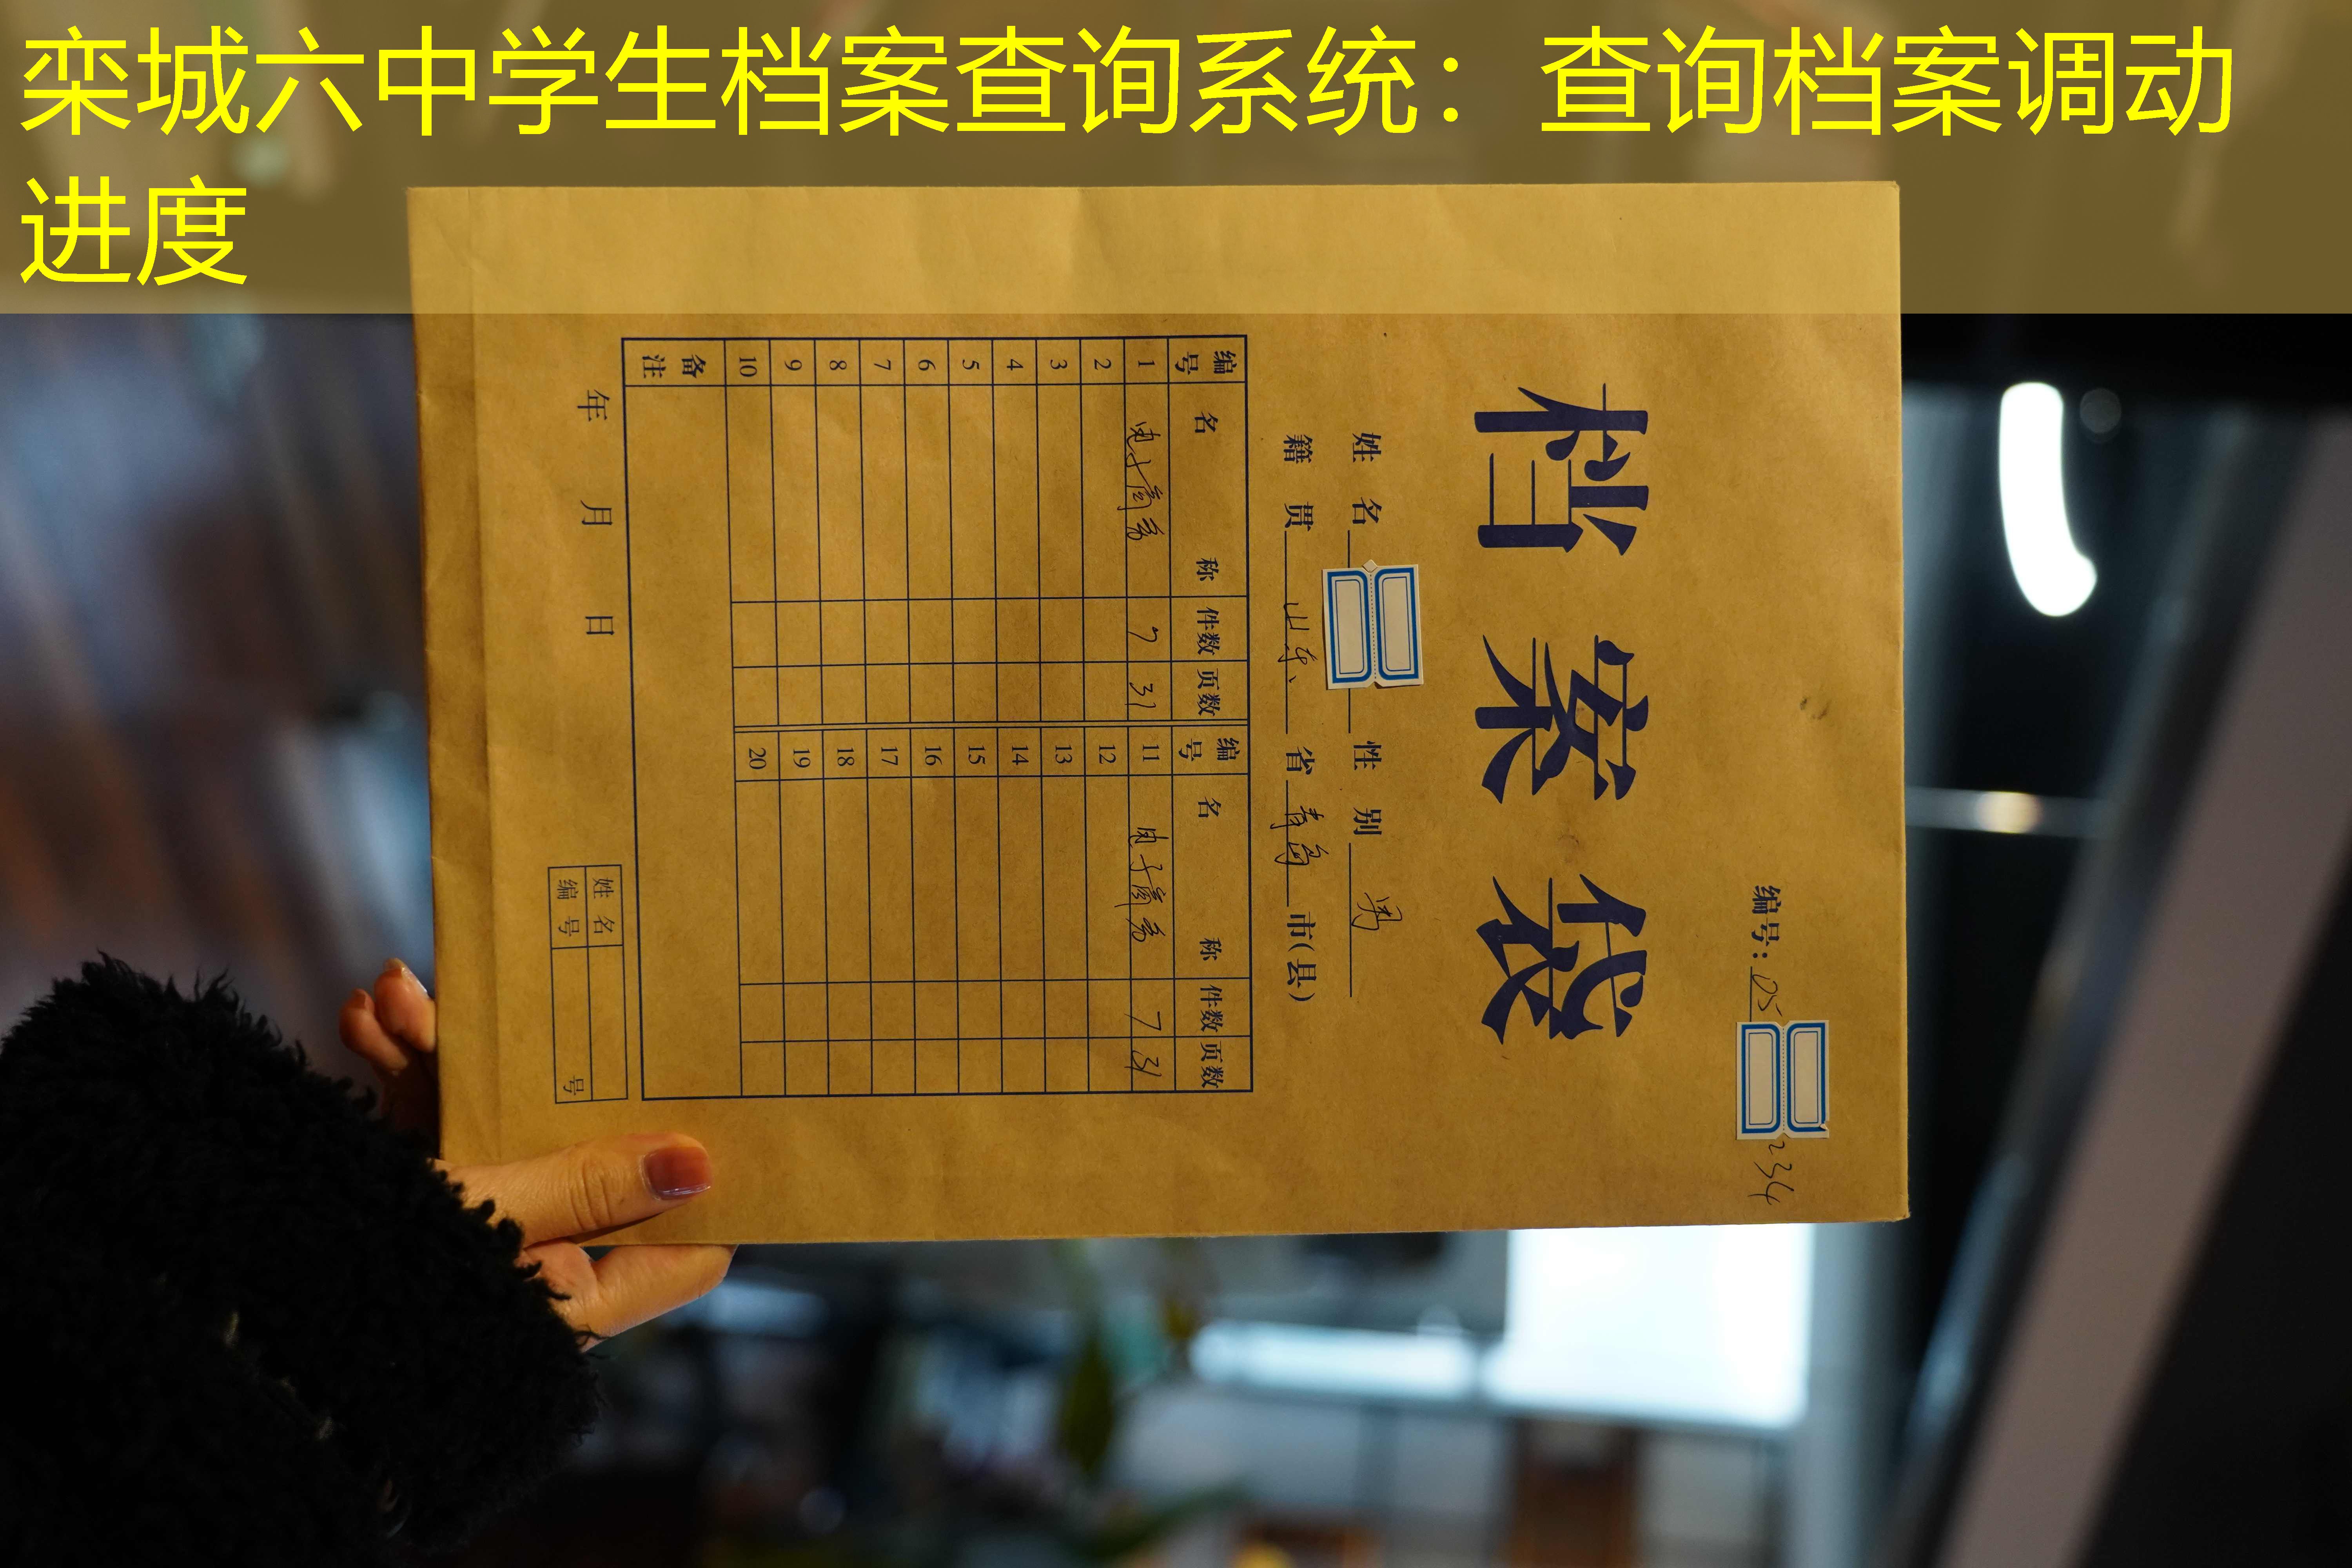 栾城六中学生档案查询系统：查询档案调动
进度
编号：05 234
档案袋
姓名 性别 男
籍贯 山东 省 青岛 市(县)
编号 名称 件数 页数 编号 名称 件数 页数
1 电子商务 7 31 11 电子商务 7 31
2 12
3 13
4 14
5 15
6 16
7 17
8 18
9 19
10 20
备注
年 月 日
姓名
编号 号